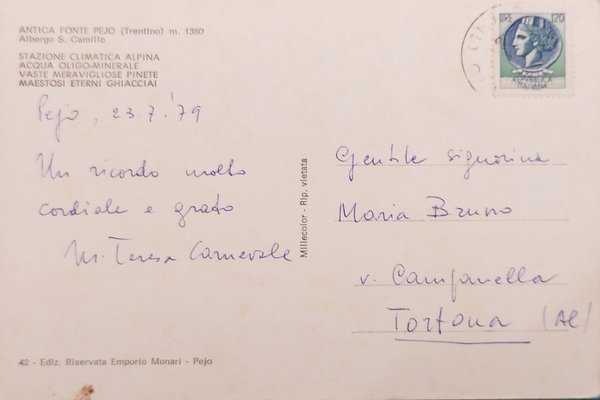 ANTICA FONTE PEJO (Trentino) m. 1380
Albergo S. Camillo
STAZIONE CLIMATICA ALPINA
ACQUA OLIGO-MINERALE
VASTE MERAVIGLIOSE PINETE
MAESTOSI ETERNI GHIACCIAI
Pejo, 23.7.'79
Un ricordo molto
cordiale e grato
M. Teresa Carnevale
42 - Ediz. Riservata Emporio Monari - Pejo
Millecolor - Rip. vietata
LIRE 120
REPUBBLICA
ITALIANA
Gentile signorina
Maria Bruno
v. Campanella
Tortona (Al)